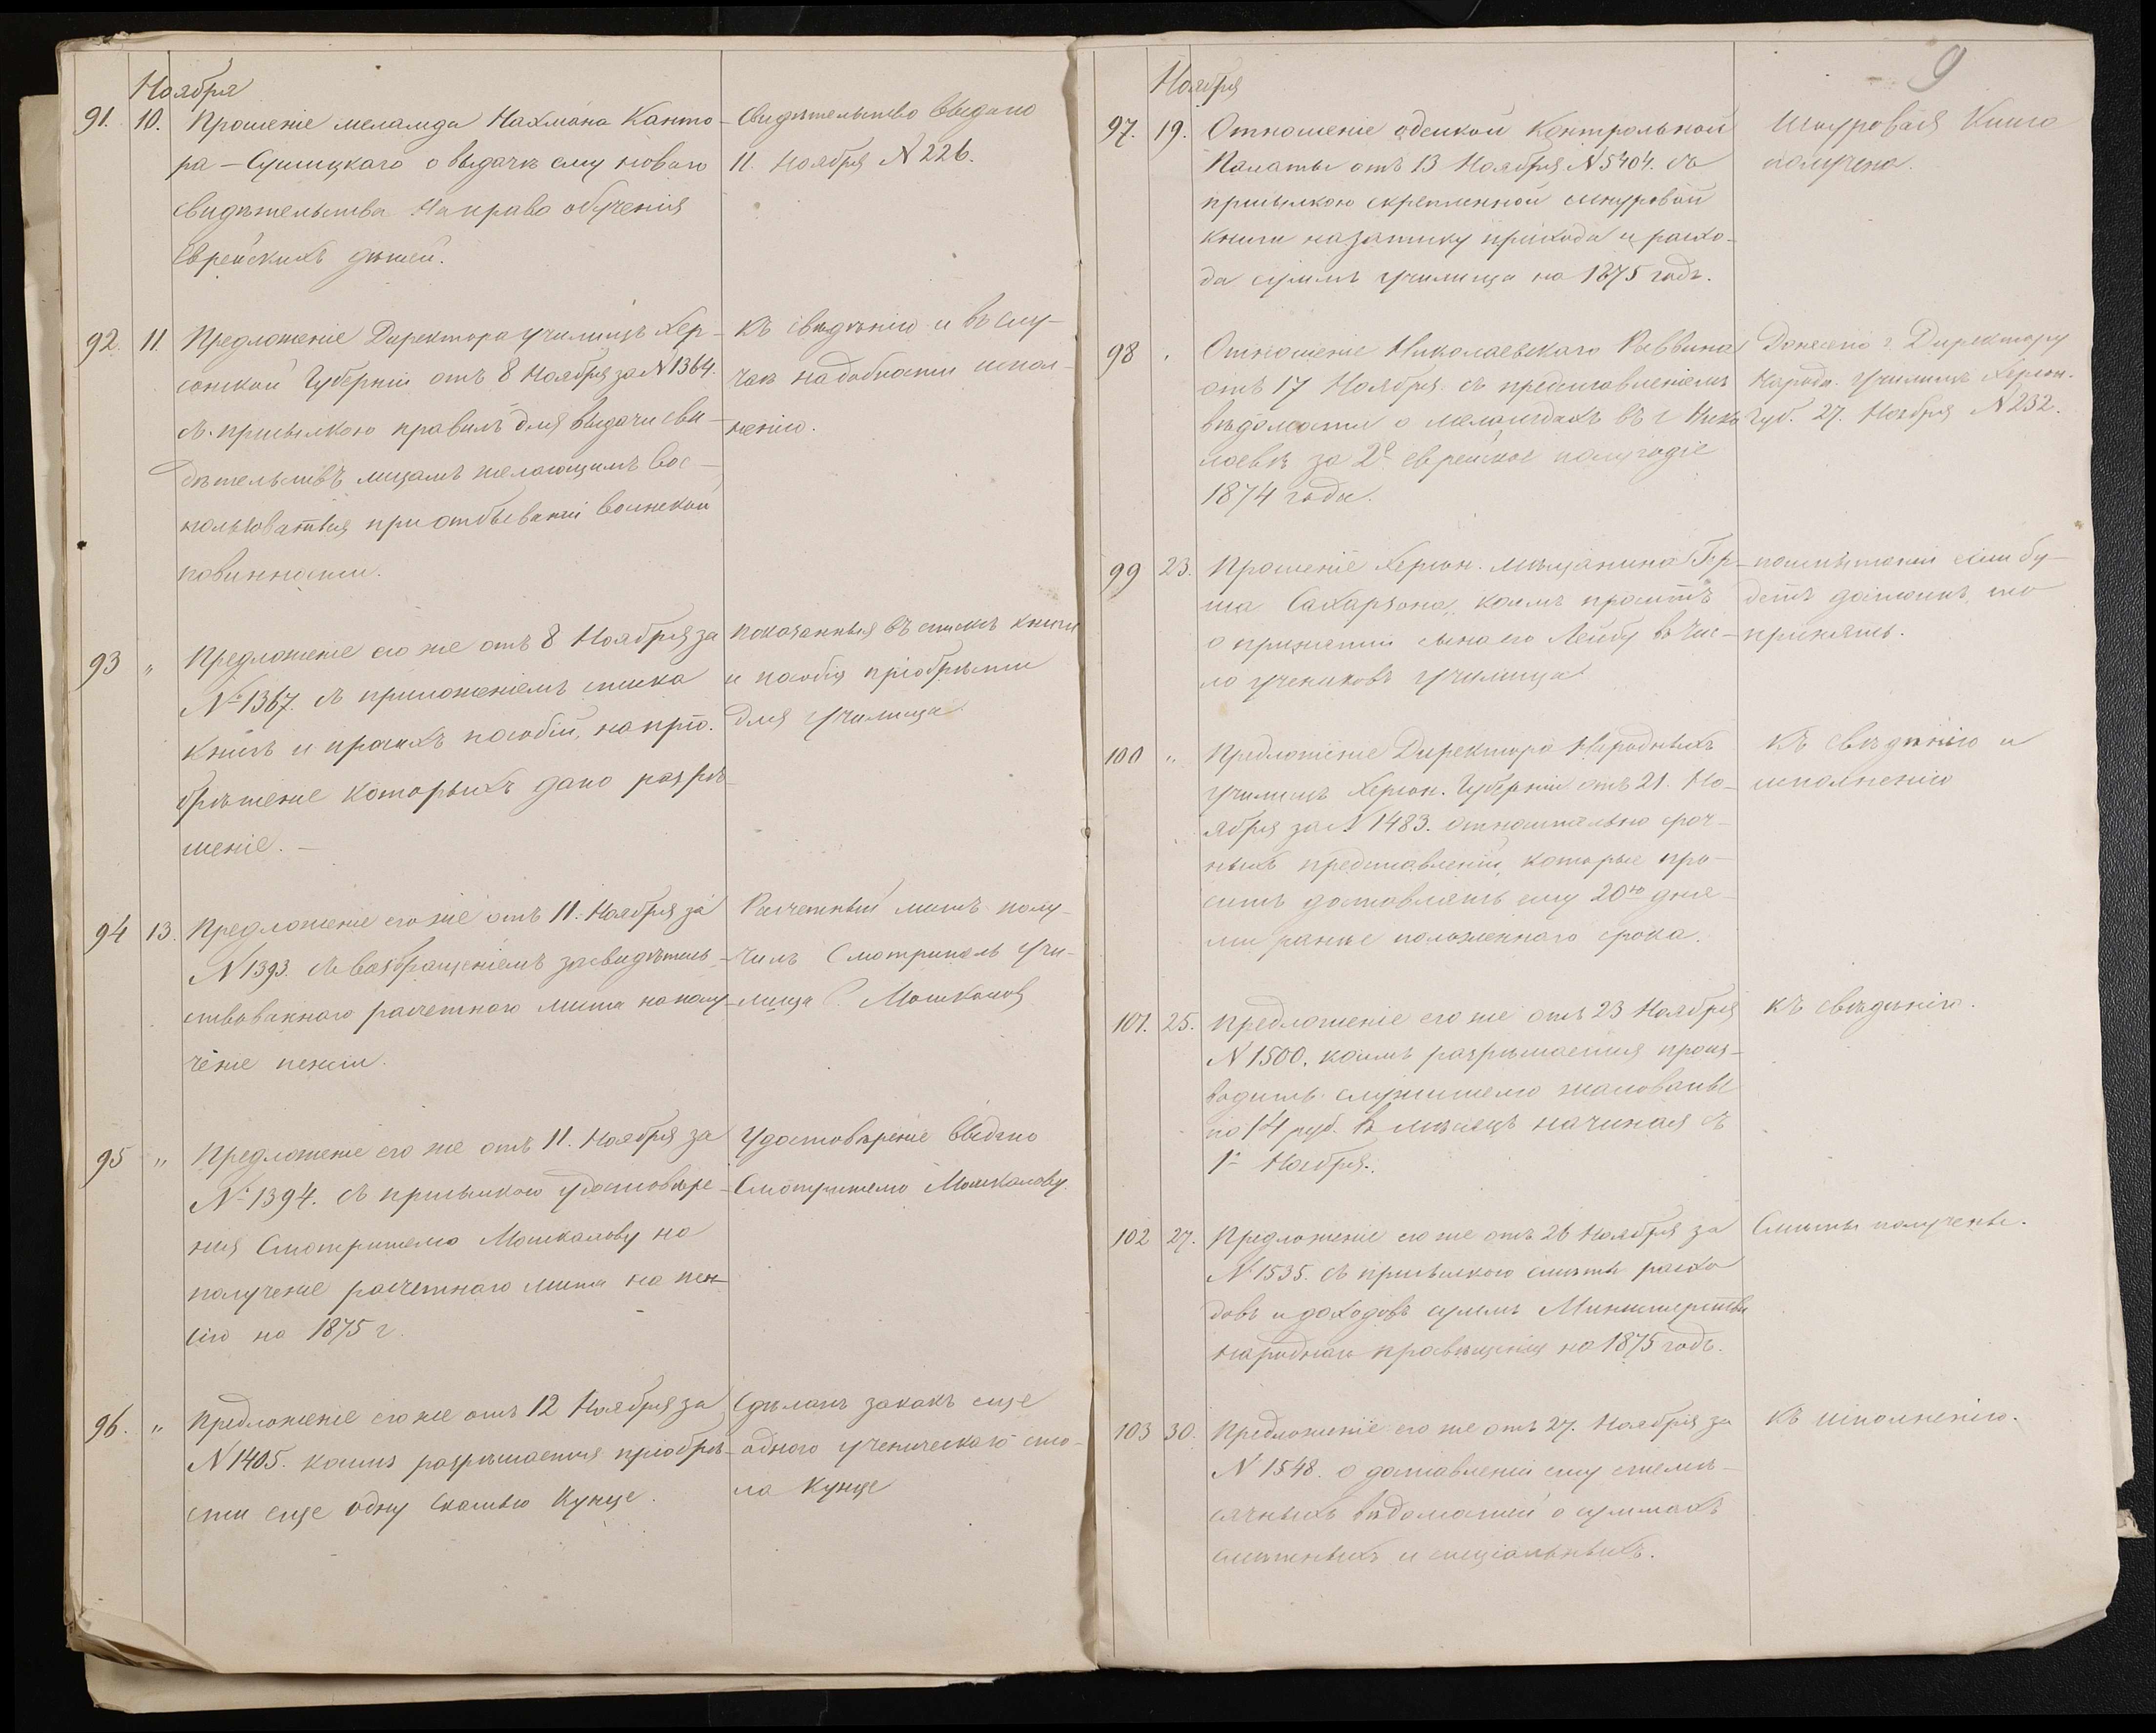 Ноября
91. 10. Прошеніе меламда Нахмана Канто-
ра-Сушицкаго о выдачѣ ему новаго
свидѣтельства на право обученія
Еврейскихъ дѣтей.
Свидѣтельство выдано
11. Ноября N 226.
92. 11. Предложеніе Директора училищъ Хер-
сонской Губерніи отъ 8 Ноября за N 1364.
съ присылкою правилъ для выдачи сви-
дѣтельствъ лицамъ желающимъ вос-
пользоваться при отбываніи воинской
повинности.
Къ свѣдѣнію и въ слу-
чаѣ надобности испол-
ненію.
93 " Предложеніе его же отъ 8 Ноября за
№ 1367. съ приложеніемъ списка
книгъ и прочихъ пособій, на прі-
обрѣтеніе которыхъ дано разрѣ-
шеніе. —
Показанныя въ спискѣ книги
и пособія пріобрѣсти
для училища
94 13. Предложеніе его же отъ 11. Ноября за
N 1393. съ возвращеніемъ засвидѣтель-
ствованнаго расчетнаго листа на полу-
ченіе пенсіи.
Расчетный листъ полу-
чилъ Смотритель Учи-
лища Г. Мошкаловъ
95 " Предложеніе его же отъ 11. Ноября за
№ 1394. съ присылкою удостовѣре-
нія Смотрителю Мошкалову на
полученіе расчетнаго листа на пен-
сію на 1875 г.
Удостовѣреніе выдано
Смотрителю Мошкалову.
96. " Предложеніе его же отъ 12 Ноября за
N 1405. коимъ разрѣшается пріобрѣ-
сти еще одну скамью Кунце.
Сдѣланъ заказъ еще
одного ученическаго сто-
ла Кунце
9
Ноября
97. 19. Отношеніе Одесской Контрольной
Палаты отъ 13 Ноября N 5404. съ
присылкою скрепленной шнуровой
книги на записку прихода и расхо-
да суммъ училища на 1875 годъ.
Шнуровая Книга
получена.
98 " Отношеніе Николаевскаго Раввина
отъ 17 Ноября съ представленіемъ
вѣдомости о меламдахъ въ г. Нико-
лаевѣ за 2е еврейское полугодіе
1874 года.
Донесено г. Директору
Народн. Училищъ Херсон.
Губ. 27. Ноября N 232.
99 23. Прошеніе Херсон. мѣщанина Гер-
ша Сахарзона, коимъ проситъ
о принятіи сына его Лейбу въ чис-
ло учениковъ училища
по испытаніи если бу-
детъ достоинъ, то
принять.
100 " Предложеніе Директора Народныхъ
училищъ Херсон. Губерніи отъ 21. Но-
ября за N 1483. относительно сроч-
ныхъ представленій, которые про-
ситъ доставлять ему 20ю дня-
ми ранѣе положеннаго срока.
Къ свѣдѣнію и
исполненію
101. 25. Предложеніе его же отъ 23 Ноября
N 1500. коимъ разрѣшается произ-
водить служителю жалованье
по 14 руб. въ мѣсяцъ начиная съ
1го Ноября.
Къ свѣдѣнію.
102 27. Предложеніе его же отъ 26 Ноября за
N 1535. съ присылкою смѣты расхо
довъ и доходовъ суммъ Министерства
народнаго просвѣщенія на 1875 годъ.
Смѣты получены.
103 30. Предложеніе его же отъ 27. Ноября за
N 1548. о доставленіи ему ежемѣ-
сячныхъ вѣдомостей о суммахъ
смѣтныхъ и спеціальныхъ.
Къ исполненію.